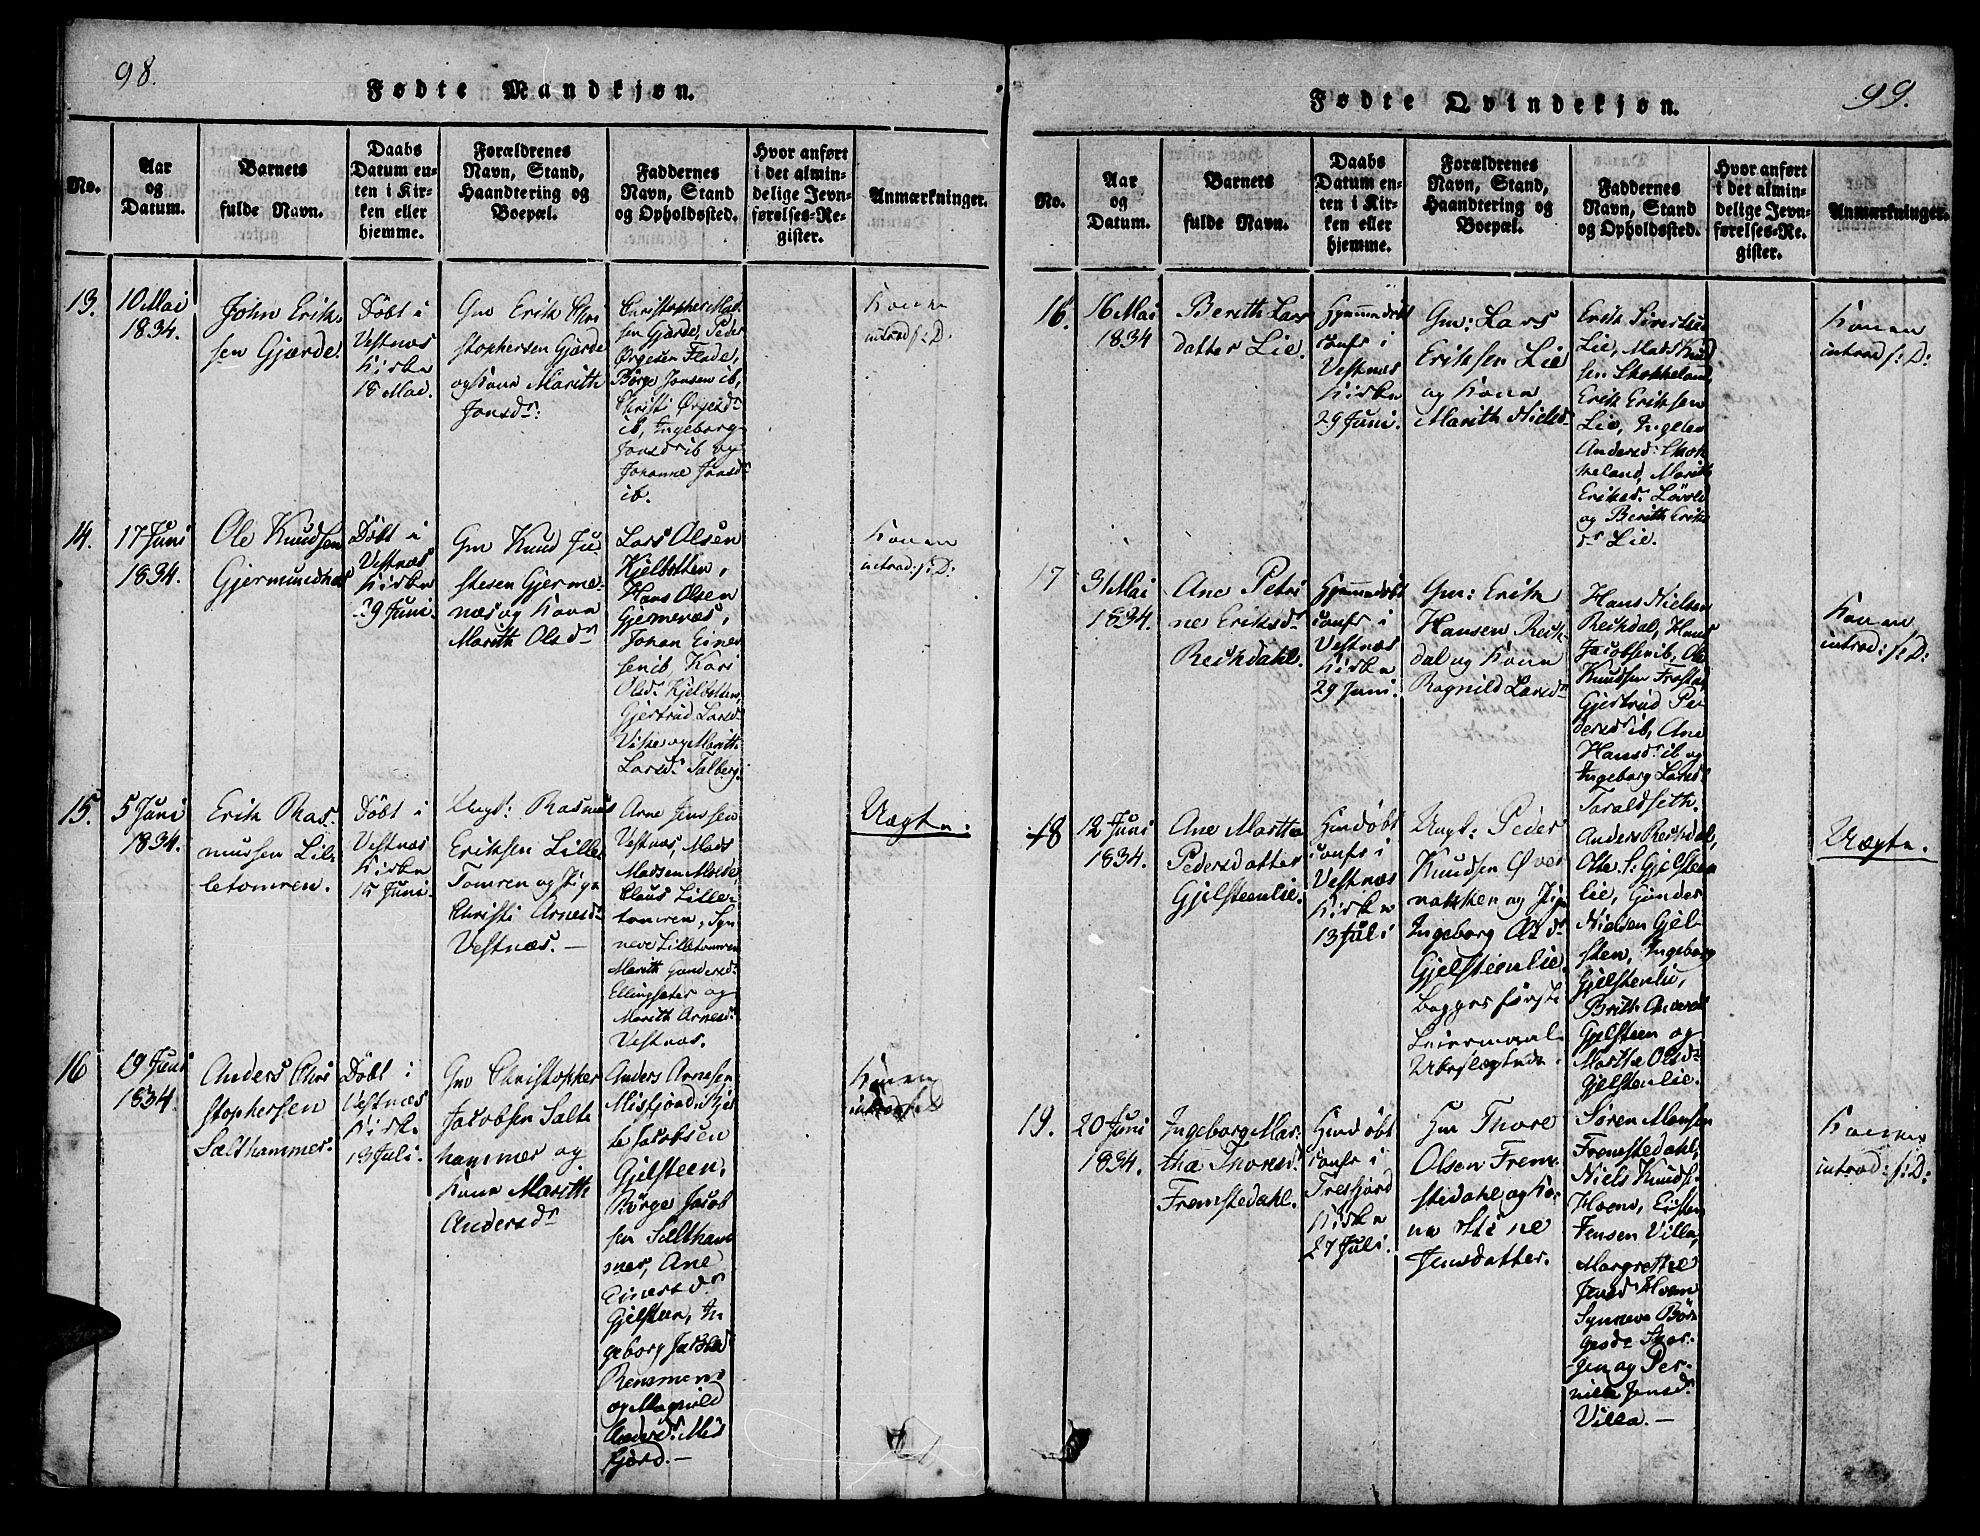 98.
Fødte Mandkjøn.
No.
Aar
og
Datum.
Barnets
fulde Navn.
Daabs
Datum en-
ten i Kir-
ken eller
hjemme.
Forældrenes
Navn, Stand,
Haandtering og
Boepæl.
Faddernes
Navn, Stand
og Opholdssted.
Hvor anført
i det almin-
delige Jevn-
førelses-Re-
gister.
Anmærkninger.
13.
10 Mai
1834.
John Erik-
sen Gjærde.
Döbt i
Vestnæs
Kirke
18 Mai.
Gm Erik Chri
stophersen Gjærde
og Kone Marith
Jonsdr:
Christopher Mat
sen Gjærde, Peder
Ørgesen Flade,
Börge Jonsen ib,
Christi Ørgesdr
ib, Ingeborg
Jonsdr ib og
Johanne Jonsdr
ib.
Konen
introd: s: D:
14.
17 Juni
1834.
Ole Knudsen
Gjermundnæs
Döbt i
Vestnæs
Kirke
29 Juni.
Gm Knud Ju
stesen Gjerme-
næs og Kone
Marith Olsdr
Lars Olsen
Kjelbotten,
Hans Olsen
Gjermenæs,
Johan Einer
sen ib, Kari
Olsdr Kjelbotten,
Gjertrud Larsdr
Viske og Marith
Larsdr Talberg.
Konen
introd: s: D:
15.
5 Juni
1834.
Erik Ras-
mussen Lil-
letomren.
Döbt i
Vestnæs
Kirke
15 Juni.
Ungk: Rasmus
Eriksen Lille
Tomren og Pige
Christi Arnesdr
Vestnæs. —
Arne Jenssen
Vestnæs, Mads
Madsen Molde,
Claus Lille-
tomren, Syn
neve Lilletomren
Marith Gundersdr
Ellingsæter og
Marith Arnesdr
Vestnæs.
Uægte.
16
19 Juni
1834.
Anders Chri
stophersen
Salthammer.
Döbt i
Vestnæs
Kirke
13 Juli.
Gm Christopher
Jacobsen Salt-
hammer og
Kone Marith
Andersdr
Anders Arnesen
Misfjord,
Jacobsen
Gjelsteen,
Börge Jacob
sen Salttham
mer, Ane
Einersdr
Gjelsteen, In
geborg Jacobsdr
Rensmem
og Magnild
Andersdr Mis
fjord. —
Konen
introd: s: D
99.
Fødte Qvindekjøn.
No.
Aar
og
Datum.
Barnets
fulde Navn.
Daabs
Datum en-
ten i Kir-
ken eller
hjemme.
Forældrenes
Navn, Stand,
Haandtering og
Boepæl.
Faddernes
Navn, Stand
og Opholdssted.
Hvor anført
i det almin-
delige Jevn-
førelses-Re-
gister.
Anmærkninger.
16.
16 Mai
1834
Berith Lars
datter Lie.
Hjemmedöbt
confr i
Vestnæs
Kirke
29 Juni.
Gm: Lars
Eriksen Lie
og Kone
Marith Nielsdr
Erik Sivertsen
Lie, Mads Knud
sen Skokkeland,
Erik Eriksen
Lie, Ingelev
Andersd: Skok-
keland, Marith
Eriksdr Lövold
og Berith Eriks
dr Lie.
Konen
introd s: D:
17
31 Mai
1834.
Ane Petri
ne Eriksdr
Reistdahl.
Hjemmedöbt
confr i
Vestnæs
Kirke
29 Juni.
Gm: Erik
Hansen Reist-
dal og Kone
Ragnild Larsdr
Hans Nielsen
Reistdal, Hans
Jacobsen ib, Ole
Knudsen Frostad
Gjertrud Pe-
dersdr ib, Ane
Hansdr ib og
Ingeborg Larsdr
Taraldseth.
Konen
introd: s: D:
18
12 Juni
1834.
Ane Martha
Pedersdatter
Gjelsteenlie.
Hmdöbt
confr i
Vestnæs
Kirke
13 Juli
Ungk: Peder
Knudsen Øver
nakken og Pige
Ingeborg Olsdr
Gjelsteenlie.
Begges förste
Leiermaal.
Ubeslægtede.
Anders Reistdal,
Ole S: Gjelsteen
lie, Gunder
Nielsen Gjel-
sten, Ingeborg
Gjelstenlie,
Brith Andersdr
Gjelsteen og
Martha Olsdr
Gjelstenlie.
Uægte.
19.
20 Juni
1834.
Ingeborg Mar-
tha Thoresdr
Fremstedahl.
Hmdöbt
confr i
Tresfjord
Kirke
27 Juli.
Gm Thore
Olsen Frem-
stedahl og Ko-
ne Stine
Jensdatter.
Sören Monsen
Fremstedahl,
Niels Knuds:
Hoem, Eisten
Jensen Villa,
Margrethe
Jensdr Hoem
Synneve Bör
gesdr Skor-
gen og Per-
nille Jensdr
Villa. —
Konen
introd: s: D: